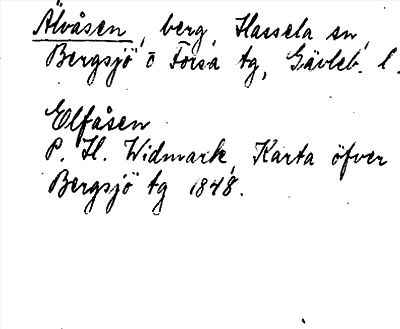 Älvåsen, berg, Hassela sn,
Bergsjö o Forsa tg, Gävleb. l.
Elfåsen
P. H. Widmark, Karta öfver
Bergsjö tg 1848.